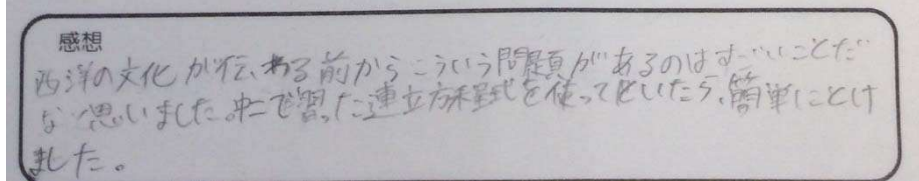 感想
西洋の文化が伝わる前からこういう問題があるのはすごいことだ
な思いました。中二で習った連立方程式を使ってといたら、簡単にとけ
ました。